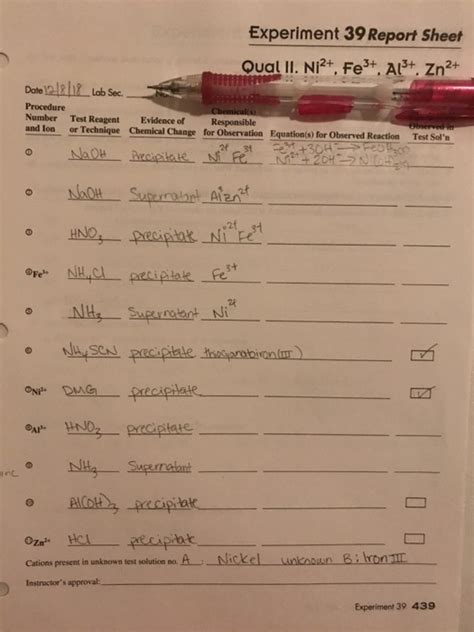 Experiment 39 Report Sheet
Qual II. Ni2+, Fe3+, Al3+, Zn2+
Date 12/8/18 Lab Sec.
Procedure Number and Ion Test Reagent or Technique Evidence of Chemical Change Chemical(s) Responsible for Observation Equation(s) for Observed Reaction Observed in Test Sol'n
NaOH Precipitate Ni2+ Fe3+ Fe3+ + 3OH-
Ni2+ + 2OH-
NaOH Supernatant Al3+ Zn2+
HNO3 precipitate Ni2+ Fe3+
Fe3+ NH4Cl precipitate Fe3+
NH3 Supernatant Ni2+
NH4SCN precipitate
Ni2+ DMG precipitate
Al3+ HNO3 precipitate
NH3 Supernatant
Al(OH)3 precipitate
Zn2+ HCl precipitate
Cations present in unknown test solution no. A: Nickel unknown B: Iron III
Instructor's approval:
Experiment 39 439